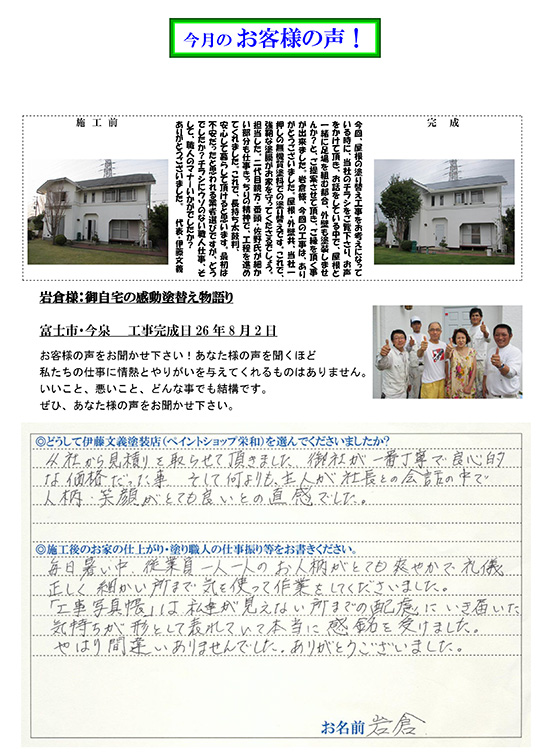 今月のお客様の声!
施工前
完成
今回、屋根の塗り替え工事をお考えになって
いる時に、当社のチラシをご覧下さり、お声
をかけて頂き、お話をしている中で、屋根と
一緒に足場を組む都合、外壁も塗装しませ
んか?と、ご提案させて頂き、ご縁を頂く事
が出来ました。岩倉様、今回の工事は、あり
がとうございました。屋根・外壁共、当社一
押しの無機質塗料での塗り替えです。これで、
強靭な塗膜がお家を守ってくださるでしょう。
担当した、二代目親方・番頭・佐野氏が細か
い部分も仕事きっちりの精神で、工程を進め
てくれました。これで、長持ち太鼓判。
安心して暮らして頂けると思います。最初は
不安だったと思われる業者選びですが、どう
でしたか?チラシにウソのない職人仕事、そ
して、職人のマナーいかがでしたか?
ありがとうございました。 代表・伊藤文義
岩倉様:御自宅の感動塗替え物語り
富士市・今泉 工事完成日26年8月2日
お客様の声をお聞かせ下さい!あなた様の声を聞くほど
私たちの仕事に情熱とやりがいを与えてくれるものはありません。
いいこと、悪いこと、どんな事でも結構です。
ぜひ、あなた様の声をお聞かせ下さい。
◎どうして伊藤文義塗装店(ペイントショップ栄和)を選んでくださいましたか?
から見積りを取らせて頂きました 御社が一番丁寧で良心的
な価格だった事 そして何よりも、主人が社長との会話の中で
人柄・笑顔がとても良いとの直感でした。
◎施工後のお家の仕上がり・塗り職人の仕事振り等をお書きください。
毎日暑い中、従業員一人一人のお人柄がとても爽やかで、礼儀
正しく 細かい所まで気を使って作業をしてくださいました。
「工事写真帳」は私事が見えない所までの配慮にいき届いた
気持ちが形として表れていて本当に感銘を受けました。
やはり間違いありませんでした。ありがとうございました。
お名前 岩倉